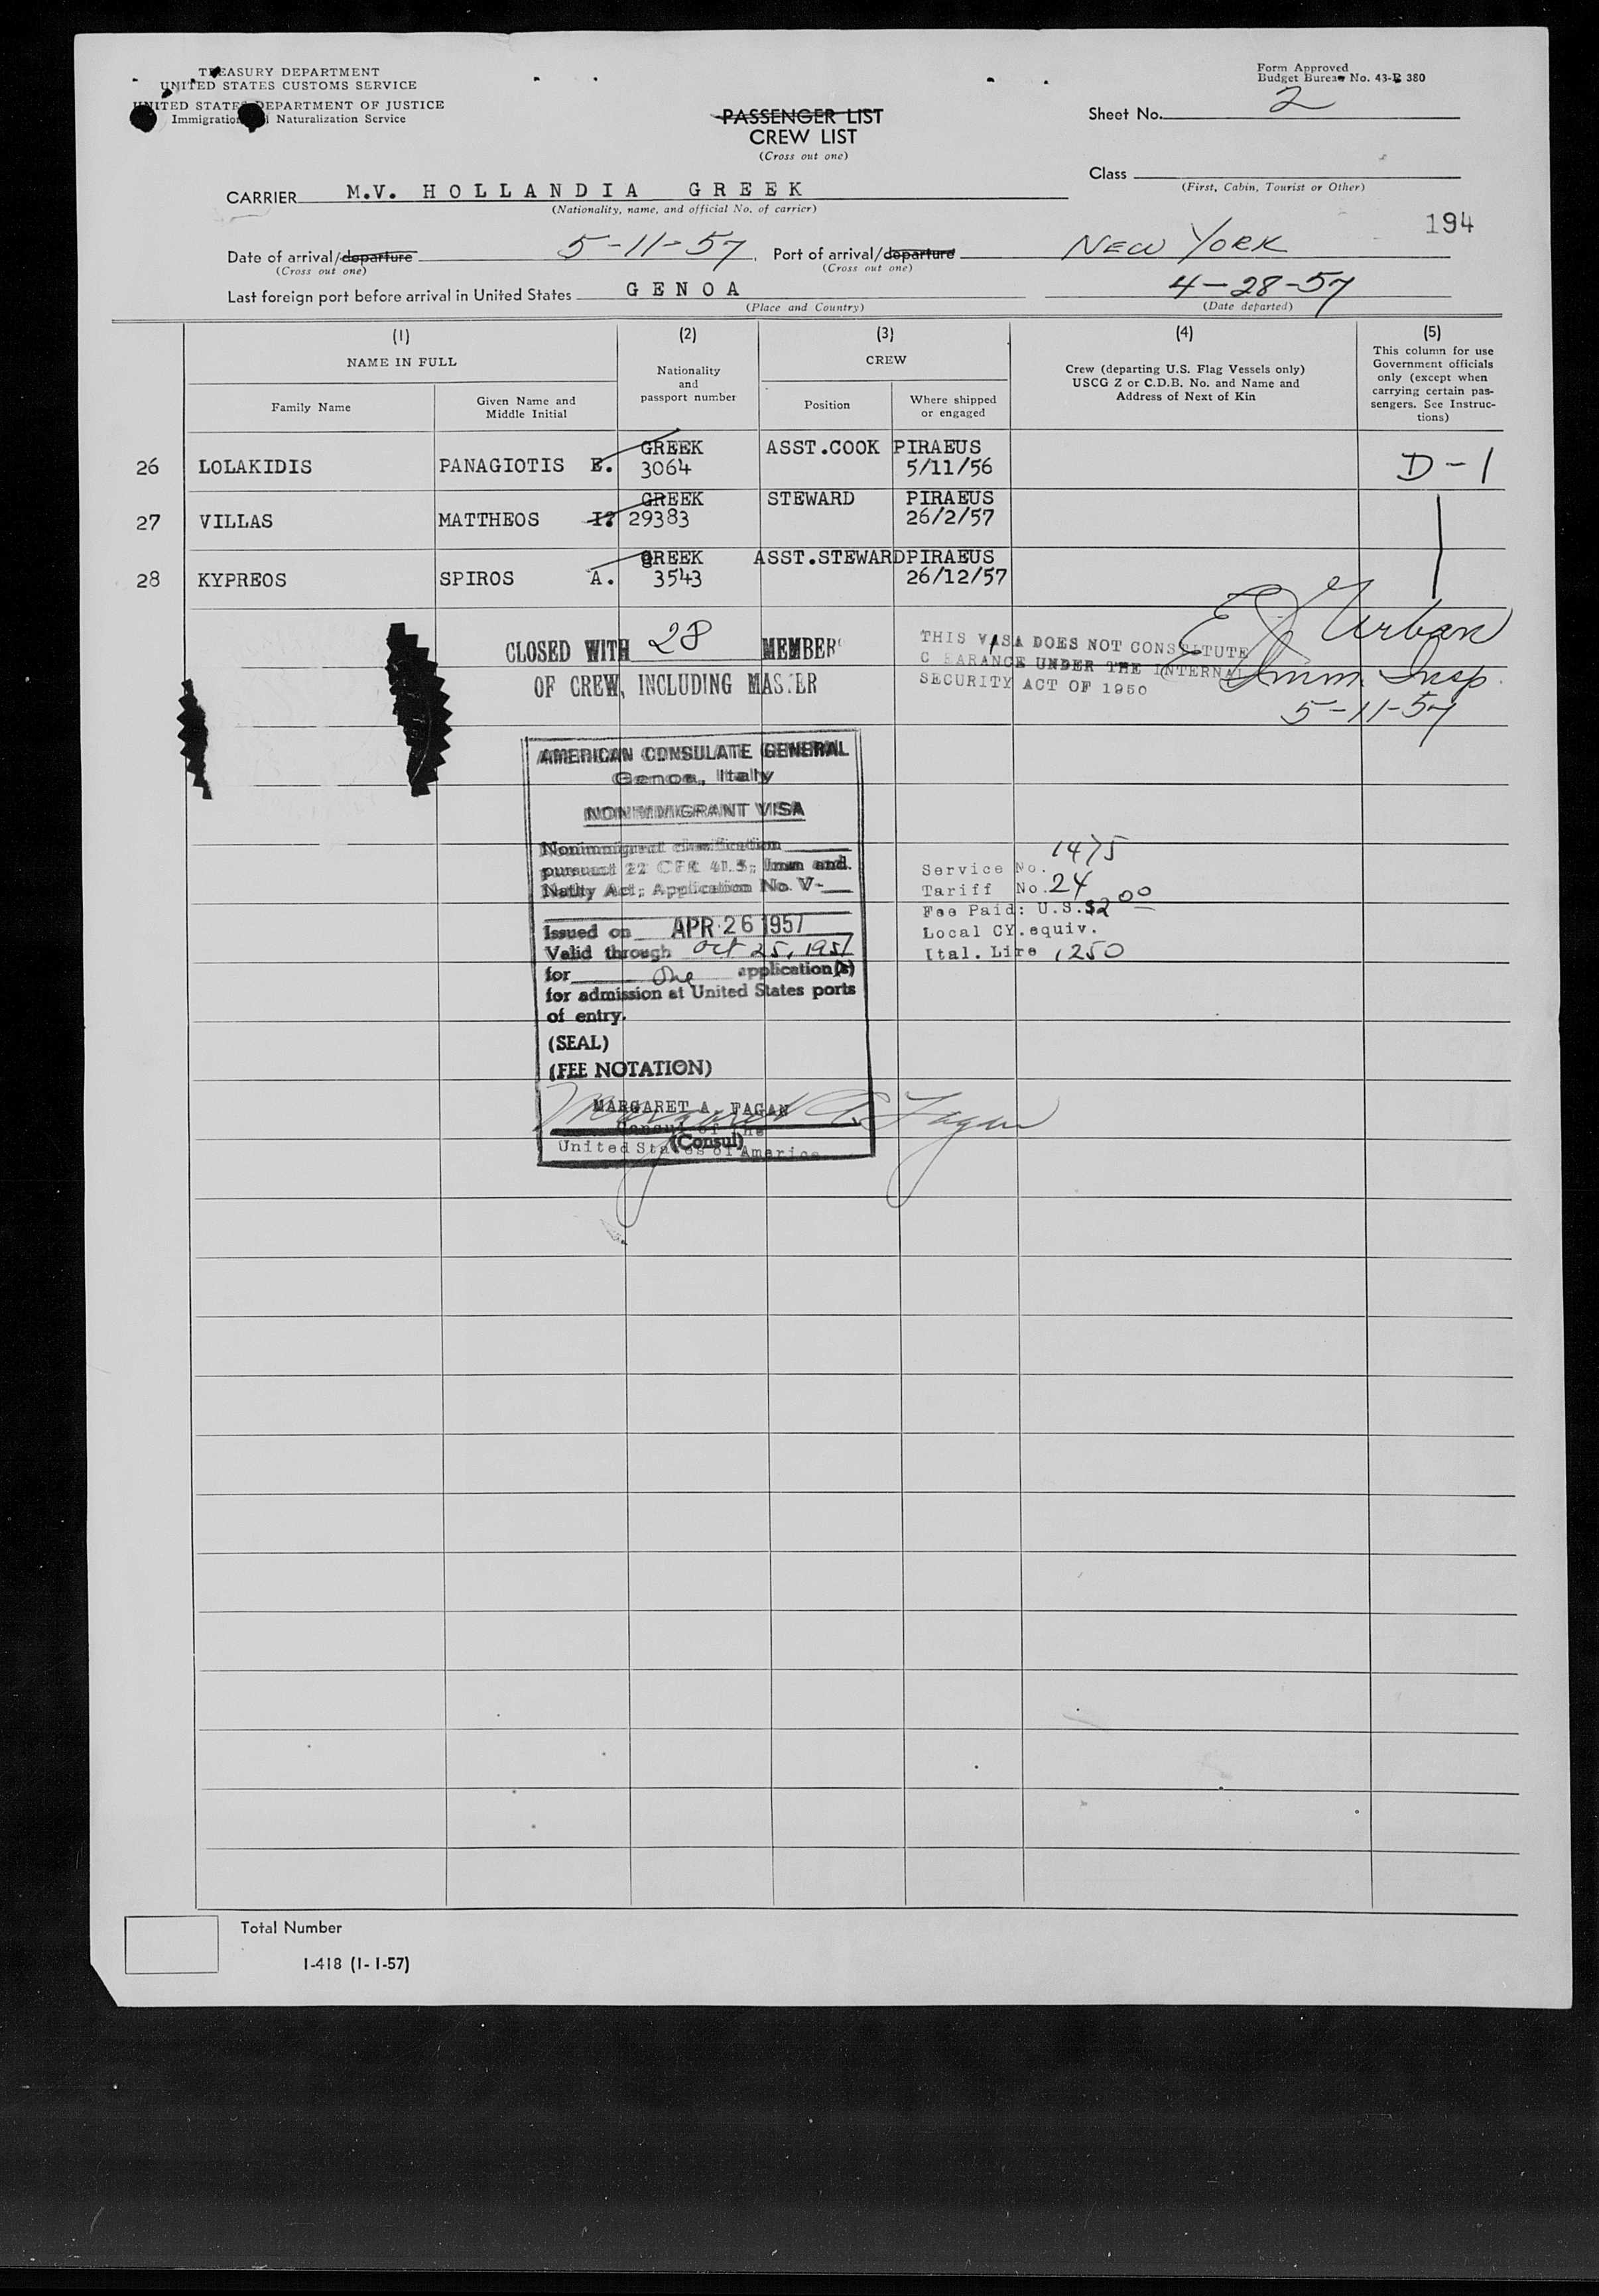 TREASURY DEPARTMENT
UNITED STATES CUSTOMS SERVICE
UNITED STATES DEPARTMENT OF JUSTICE
Immigration Naturalization Service
Form Approved
Budget Bureau No. 43-R 380
PASSENGER LIST
CREW LIST
(Cross out one)
Sheet No. 2
Class
(First, Cabin, Tourist or Other)
CARRIER M.V. HOLLANDIA GREEK
(Nationality, name, and official No. of carrier)
194
Date of arrival/departure 5-11-57, Port of arrival/departure NEW YORK
(Cross out one) (Cross out one)
Last foreign port before arrival in United States GENOA 4-28-57
(Place and Country) (Date departed)
(1) (2) (3) (4) (5)
NAME IN FULL
Family Name
Given Name and
Middle Initial
Nationality
and
passport number
CREW
Position
Where shipped
or engaged
Crew (departing U.S. Flag Vessels only)
USCG Z or C.D.B. No. and Name and
Address of Next of Kin
This column for use
Government officials
only (except when
carrying certain pas-
sengers. See Instruc-
tions)
GREEK ASST.COOK PIRAEUS
26 LOLAKIDIS PANAGIOTIS E. 3064 5/11/56 D-1
GREEK STEWARD PIRAEUS
27 VILLAS MATTHEOS I? 29383 26/2/57
GREEK ASST.STEWARD PIRAEUS
28 KYPREOS SPIROS A. 3543 26/12/57
CLOSED WITH 28 MEMBER
OF CREW, INCLUDING MASTER
THIS VISA DOES NOT CONSTITUTE
C EARANCE UNDER THE INTERNA
SECURITY ACT OF 1950
E J Urban
Imm. Insp.
5-11-57
AMERICAN CONSULATE GENERAL
Genoa, Italy
NONIMMIGRANT VISA
Nonimmigrant classification
pursuant 22 CFR 41.5; Imm and
Natlty Act; Application No. V-
Issued on APR 26 1957
Valid through Oct 25, 1957
for One application(s)
for admission at United States ports
of entry.
(SEAL)
(FEE NOTATION)
MARGARET A. FAGAN
Margaret A. Fagan
Consul of the
(Consul)
United States of America
Service No. 1475
Tariff No. 24
Fee Paid: U.S.$2 00
Local CY.equiv.
Ital. Lire 1250
Total Number
I-418 (1-1-57)